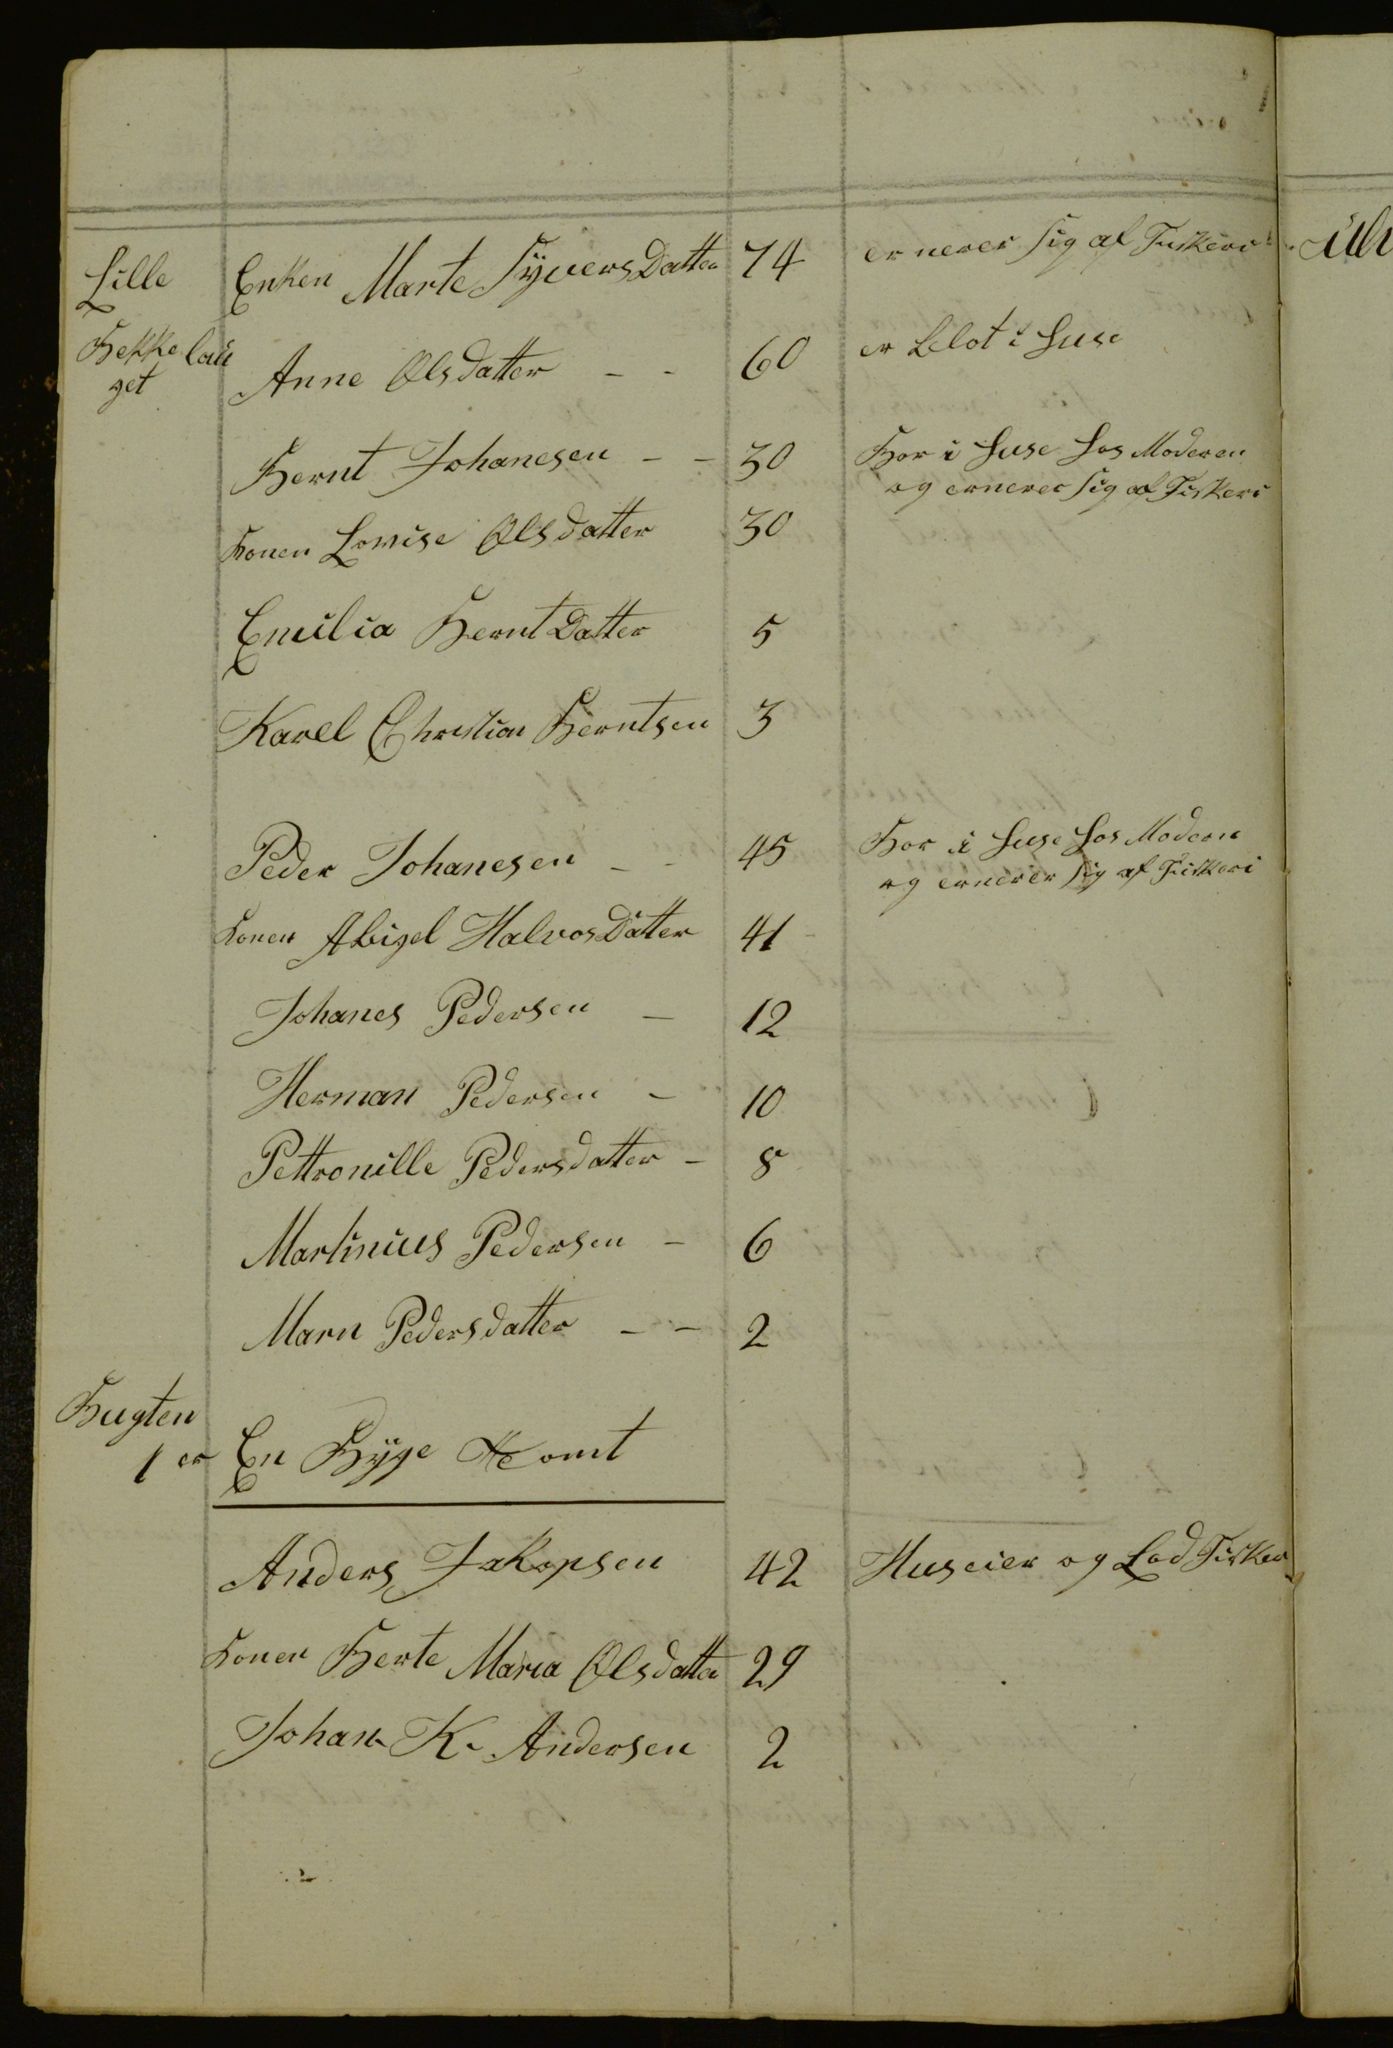 Lille Enken Marte SyversDatter 74 er nerer sig af Fiskeri
Bekkelau Anne Olsdatter - - 60 er blot i huse
get
Bernt Johanesen - - 30 Bor i huse hos Moderen
og ernerer sig af Fiskeri
konen Lovise Olsdatter 30
Emilia BerntDatter 5
Karel Christian Berntsen 3
Peder Johanesen - - 45 Bor i huse hos Modern
og ernerer sig af Fiskeri
konen Abigel HalvosDatter 41
Johanes Pedersen - 12
Herman Pedersen - 10
Pettronille Pedersdatter - 8
Martinius Pedersen - 6
Marn Pedersdatter - - 2
Bugten
1 er En Byge Tomt
Anders Jakopsen 42 Huseier og Lod Fisker
konen Berte Maria Olsdatter 29
Johan K. Andersen 2